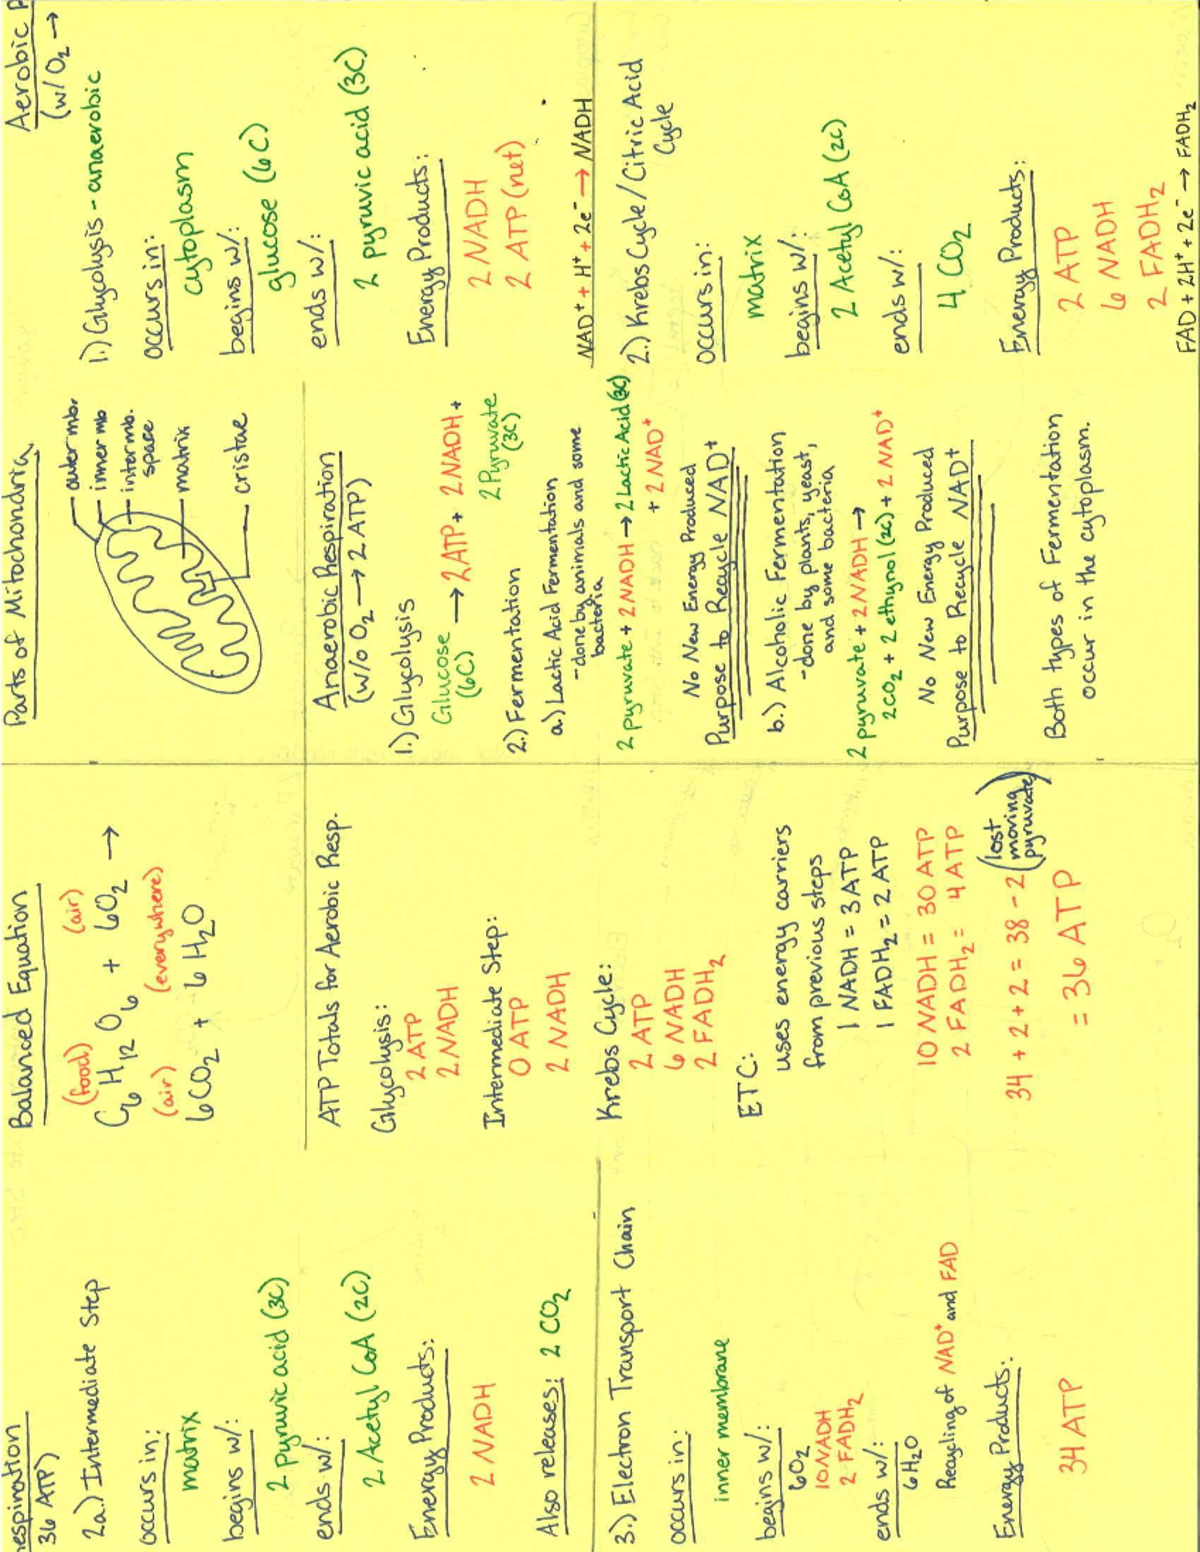 espiration
36 ATP)
2a.) Intermediate Step
occurs in:
matrix
begins w/:
2 pyruvic acid (3C)
ends w/:
2 Acetyl CoA (2C)
Energy Products:
2 NADH
Also releases: 2 CO₂
3.) Electron Transport Chain
occurs in:
inner membrane
begins w/:
6O₂
10NADH
2 FADH₂
ends w/:
6H₂O
Recycling of NAD⁺ and FAD
Energy Products:
34 ATP
Balanced Equation
(food) (air)
C₆H₁₂O₆ + 6O₂ →
(air) (everywhere)
6CO₂ + 6H₂O
ATP Totals for Aerobic Resp.
Glycolysis:
2 ATP
2 NADH
Intermediate Step:
0 ATP
2 NADH
Krebs Cycle:
2 ATP
6 NADH
2 FADH₂
ETC:
uses energy carriers
from previous steps
1 NADH = 3 ATP
1 FADH₂ = 2 ATP
10 NADH = 30 ATP
2 FADH₂ = 4 ATP
34 + 2 + 2 = 38 - 2 (lost moving pyruvate)
= 36 ATP
Parts of Mitochondria
outer mbr.
inner mb
intermb.
space
matrix
cristae
Anaerobic Respiration
(w/o O₂ → 2 ATP)
1.) Glycolysis
Glucose → 2ATP + 2NADH +
(6C) 2 Pyruvate
(3C)
2.) Fermentation
a.) Lactic Acid Fermentation
-done by animals and some
bacteria
2 pyruvate + 2NADH → 2 Lactic Acid (3C)
+ 2NAD⁺
No New Energy Produced
Purpose to Recycle NAD⁺
b.) Alcoholic Fermentation
-done by plants, yeast,
and some bacteria
2 pyruvate + 2NADH →
2CO₂ + 2 ethynol (2C) + 2 NAD⁺
No New Energy Produced
Purpose to Recycle NAD⁺
Both types of Fermentation
occur in the cytoplasm.
Aerobic
(w/ O₂ →
1.) Glycolysis - anaerobic
occurs in:
cytoplasm
begins w/:
glucose (6C)
ends w/:
2 pyruvic acid (3C)
Energy Products:
2 NADH
2 ATP (net)
NAD⁺ + H⁺ + 2e⁻ → NADH
2.) Krebs Cycle/Citric Acid
Cycle
occurs in:
matrix
begins w/:
2 Acetyl CoA (2C)
ends w/:
4 CO₂
Energy Products:
2 ATP
6 NADH
2 FADH₂
FAD + 2H⁺ + 2e⁻ → FADH₂